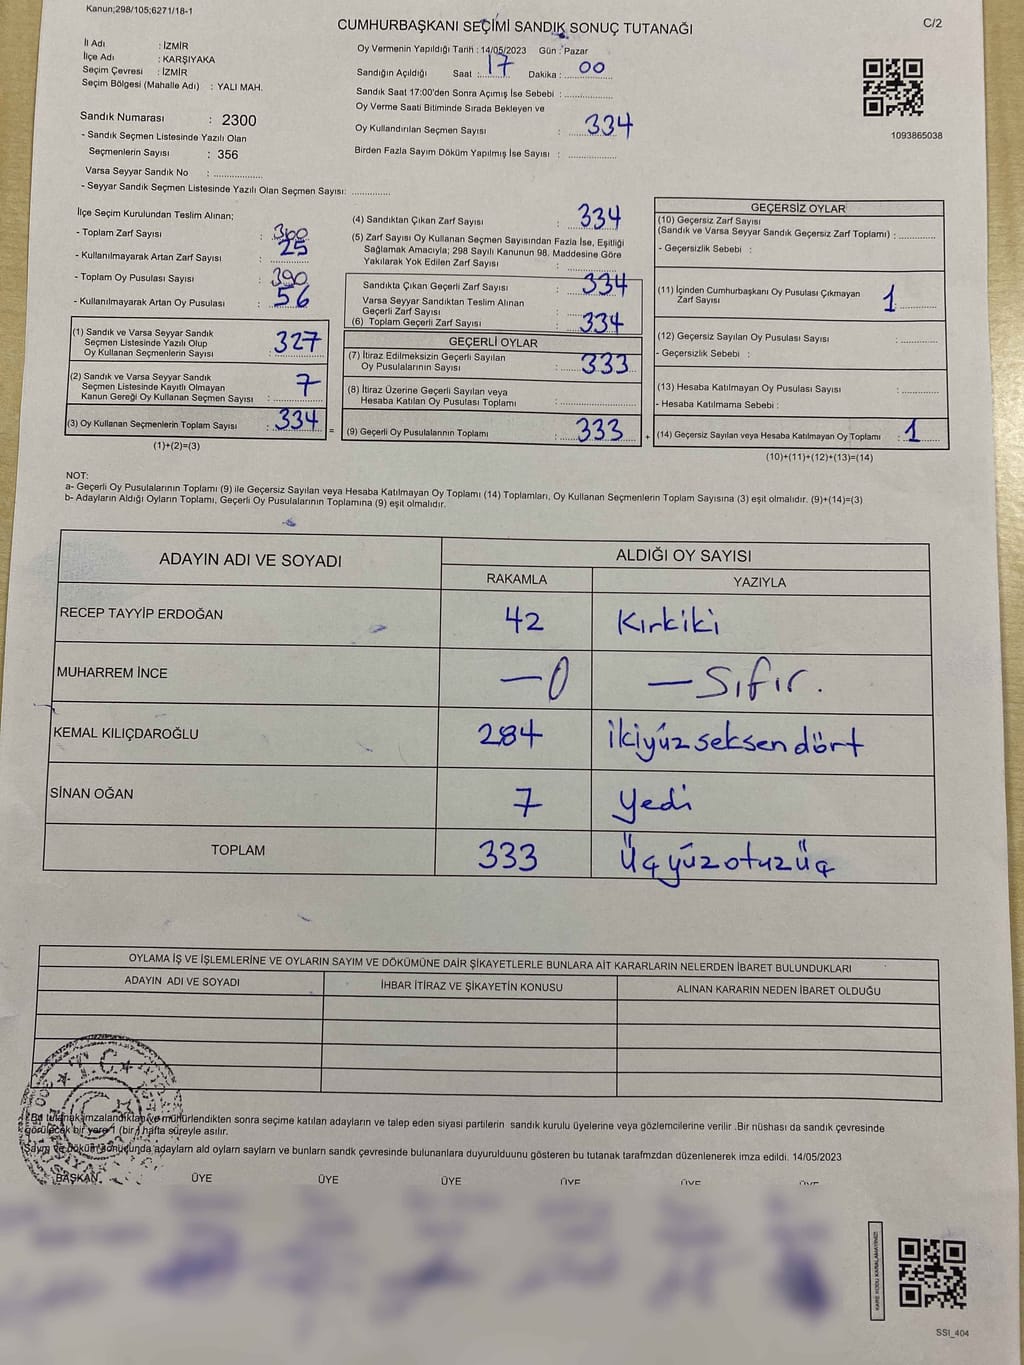 Kanun;298/105;6271/18-1
CUMHURBAŞKANI SEÇİMİ SANDIK SONUÇ TUTANAĞI
C/2
İl Adı : İZMİR
İlçe Adı : KARŞIYAKA
Seçim Çevresi : İZMİR
Seçim Bölgesi (Mahalle Adı) : YALI MAH.
Sandık Numarası : 2300
- Sandık Seçmen Listesinde Yazılı Olan
Seçmenlerin Sayısı : 356
Varsa Seyyar Sandık No : ..............
- Seyyar Sandık Seçmen Listesinde Yazılı Olan Seçmen Sayısı: ............
Oy Vermenin Yapıldığı Tarih : 14/05/2023 Gün : Pazar
Sandığın Açıldığı Saat : 17 Dakika : 00
Sandık Saat 17:00'den Sonra Açımış İse Sebebi : ..............
Oy Verme Saati Bitiminde Sırada Bekleyen ve
Oy Kullandırılan Seçmen Sayısı : 334
Birden Fazla Sayım Döküm Yapılmış İse Sayısı : ..............
1093865038
İlçe Seçim Kurulundan Teslim Alınan;
- Toplam Zarf Sayısı : 360
- Kullanılmayarak Artan Zarf Sayısı : 25
- Toplam Oy Pusulası Sayısı : 390
- Kullanılmayarak Artan Oy Pusulası : 56
(1) Sandık ve Varsa Seyyar Sandık
Seçmen Listesinde Yazılı Olup
Oy Kullanan Seçmenlerin Sayısı : 327
(2) Sandık ve Varsa Seyyar Sandık
Seçmen Listesinde Kayıtlı Olmayan
Kanun Gereği Oy Kullanan Seçmen Sayısı : 7
(3) Oy Kullanan Seçmenlerin Toplam Sayısı : 334
(1)+(2)=(3)
(4) Sandıktan Çıkan Zarf Sayısı : 334
(5) Zarf Sayısı Oy Kullanan Seçmen Sayısından Fazla İse, Eşitliği
Sağlamak Amacıyla; 298 Sayılı Kanunun 98. Maddesine Göre
Yakılarak Yok Edilen Zarf Sayısı : ..............
Sandıkta Çıkan Geçerli Zarf Sayısı : 334
Varsa Seyyar Sandıktan Teslim Alınan
Geçerli Zarf Sayısı : ..............
(6) Toplam Geçerli Zarf Sayısı : 334
GEÇERLİ OYLAR
(7) İtiraz Edilmeksizin Geçerli Sayılan
Oy Pusulalarının Sayısı : 333
(8) İtiraz Üzerine Geçerli Sayılan veya
Hesaba Katılan Oy Pusulası Toplamı : ..............
= (9) Geçerli Oy Pusulalarının Toplamı : 333
GEÇERSİZ OYLAR
(10) Geçersiz Zarf Sayısı
(Sandık ve Varsa Seyyar Sandık Geçersiz Zarf Toplamı) : ............
- Geçersizlik Sebebi :
(11) İçinden Cumhurbaşkanı Oy Pusulası Çıkmayan
Zarf Sayısı : 1
(12) Geçersiz Sayılan Oy Pusulası Sayısı : ............
- Geçersizlik Sebebi :
(13) Hesaba Katılmayan Oy Pusulası Sayısı : ............
- Hesaba Katılmama Sebebi :
+ (14) Geçersiz Sayılan veya Hesaba Katılmayan Oy Toplamı : 1
(10)+(11)+(12)+(13)=(14)
NOT:
a- Geçerli Oy Pusulalarının Toplamı (9) ile Geçersiz Sayılan veya Hesaba Katılmayan Oy Toplamı (14) Toplamları, Oy Kullanan Seçmenlerin Toplam Sayısına (3) eşit olmalıdır. (9)+(14)=(3)
b- Adayların Aldığı Oyların Toplamı, Geçerli Oy Pusulalarının Toplamına (9) eşit olmalıdır.
ADAYIN ADI VE SOYADI ALDIĞI OY SAYISI
RAKAMLA YAZIYLA
RECEP TAYYİP ERDOĞAN 42 Kırkiki
MUHARREM İNCE —0 —Sıfır.
KEMAL KILIÇDAROĞLU 284 ikiyüzseksendört
SİNAN OĞAN 7 yedi
TOPLAM 333 Üçyüzotuzüç
OYLAMA İŞ VE İŞLEMLERİNE VE OYLARIN SAYIM VE DÖKÜMÜNE DAİR ŞİKAYETLERLE BUNLARA AİT KARARLARIN NELERDEN İBARET BULUNDUKLARI
ADAYIN ADI VE SOYADI İHBAR İTİRAZ VE ŞİKAYETİN KONUSU ALINAN KARARIN NEDEN İBARET OLDUĞU
T.C.
Bu tutanak imzalandıktan ve mühürlendikten sonra seçime katılan adayların ve talep eden siyasi partilerin sandık kurulu üyelerine veya gözlemcilerine verilir .Bir nüshası da sandık çevresinde
görülecek bir yere 1 (bir) hafta süreyle asılır.
Sayım ve döküm sonucunda adayların ald oyların sayların ve bunların sandk çevresinde bulunanlara duyurulduunu gösteren bu tutanak tarafmzdan düzenlenerek imza edildi. 14/05/2023
BAŞKAN ÜYE ÜYE ÜYE ÜYE ÜYE ÜYE
KARE KODU KARALAMAYINIZ!
SSI_404